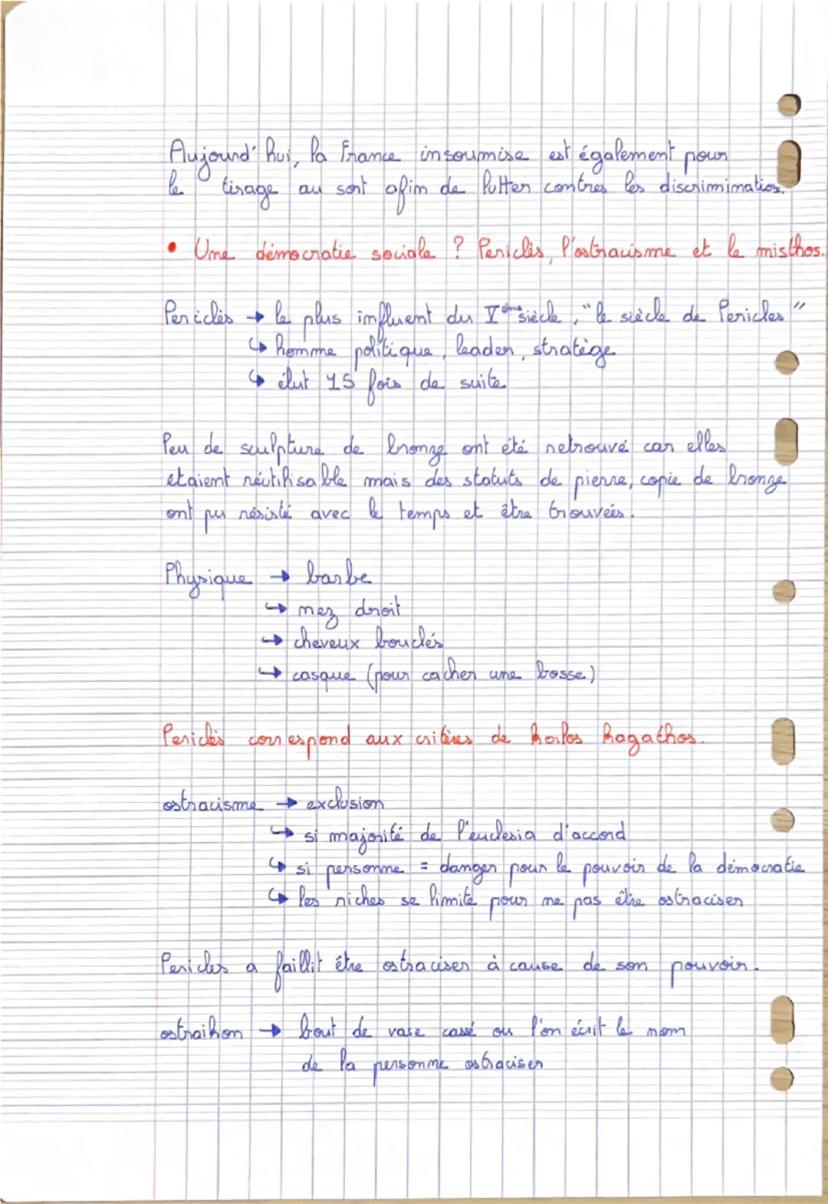 Aujourd'hui, la France insoumise est également pour
le tirage au sort afin de lutter contres les discrimination.
• Une démocratie sociale ? Periclès, l'ostracisme et le misthos.
Periclès → le plus influent du Vème siècle, "le siècle de Pericles"
↳ homme politique, leader, stratège
↳ élut 15 fois de suite
Peu de sculpture de bronze ont été retrouvé car elles
étaient réutilisable mais des statuts de pierre, copie de bronze
ont pu résisté avec le temps et être trouvées.
Physique → barbe
↳ nez droit
↳ cheveux bouclés
↳ casque (pour cacher une bosse)
Periclès correspond aux critères de koilos kagathos.
ostracisme → exclusion
↳ si majorité de l'euclesia d'accord
↳ si personne = danger pour le pouvoir de la démocratie
↳ les riches se limite pour ne pas être ostraciser
Pericles a faillit être ostraciser à cause de son pouvoir.
ostraikon → bout de vase cassé ou l'on écrit le nom
de la personne ostraciser